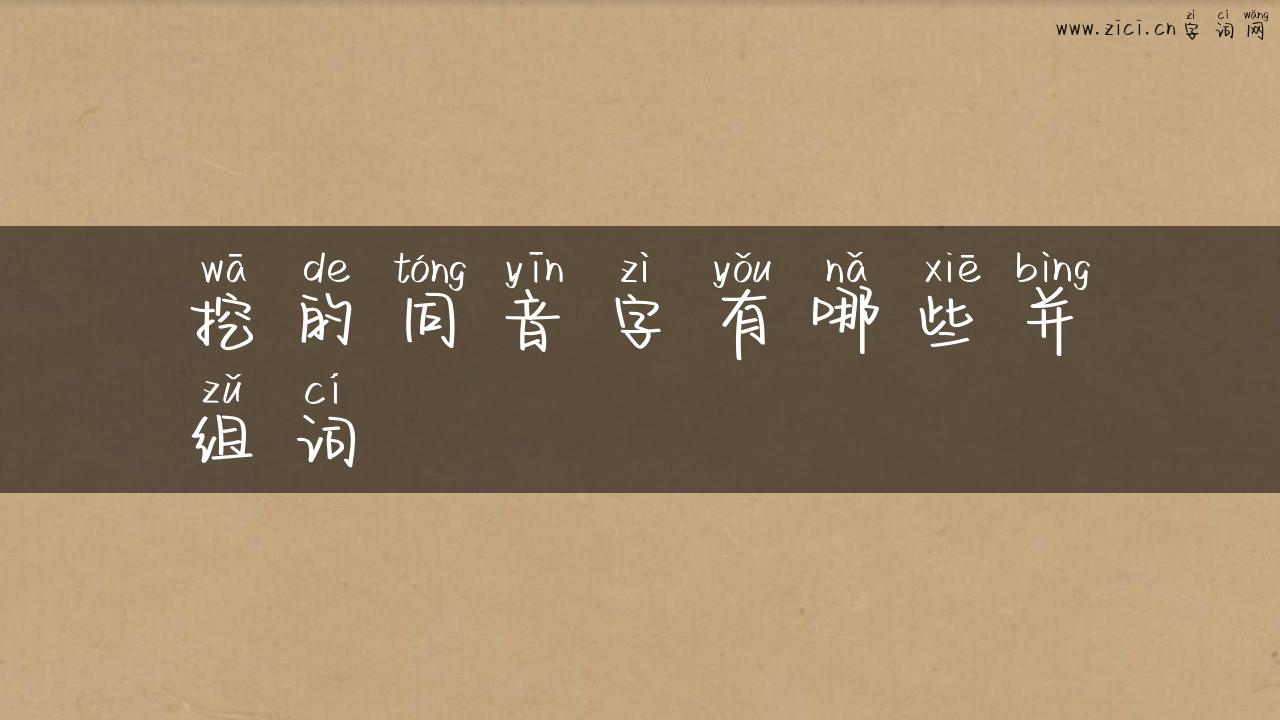 zì cí wǎng
www.zici.cn 字词网
wā de tóng yīn zì yǒu nǎ xiē bìng
挖的同音字有哪些并
zǔ cí
组词